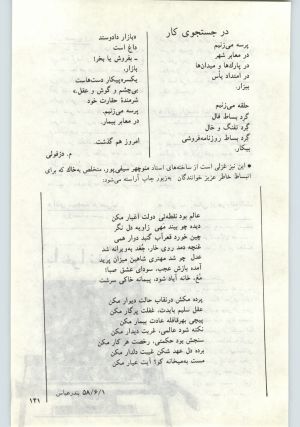 در جستجوی کار
پرسه می‌زنیم
در معابر شهر
در پارک‌ها و میدان‌ها
در امتداد یأس
بیزار.
حلقه می‌زنیم
گرد بساط فال
گرد تفنگ و خال
گرد بساط روزنامه‌فروشی
بیکار.
«بازار دادوستد
داغ است
– بفروش یا بخر!
بازار،
یکسر پیکار دست‌هاست
بی‌چشم و گوش و عقل.»
شرمندهٔ حقارت خود
پرسه می‌زنیم.
در معابر بیمار.
امروز هم گذشت.
م. دزفولی
● این نیز غزلی است از ساخته‌های استاد منوچهر سیفی‌پور، متخلص به‌خاک که برای
انبساط خاطر عزیز خوانندگان به‌زیور چاپ آراسته می‌شود:
عالم بود نقطه‌ئی دولت اغیار مکن
دیده چو بیند مهی زاویه دل نگر
چین خورد قعرآب گنبد دوار همی
غنچه دمد روی خار، جُغد به‌ویرانه شد
عدل چو شد مهتری شاهین میزان پرید
آمده بازش عجب، سودای عشق صبا!
مُغ، خانه آباد شود، پیمانه خاکی سرشت
پرده مکش درنقاب حالت دیوار مکن
عقل سلیم بایدت، غفلت پرگار مکن
پیچی بهرقافله عادت بیمار مکن
نکته شود عالمی، غربت دیدار مکن
سنجش بود حکمتی، رخصت هر کار مکن
برده دل عهد شکن غیبت دلدار مکن
مست به‌میخانه کو؟ آیت غبار مکن
۵۸/۶/۱ بندرعباس
۱۴۱